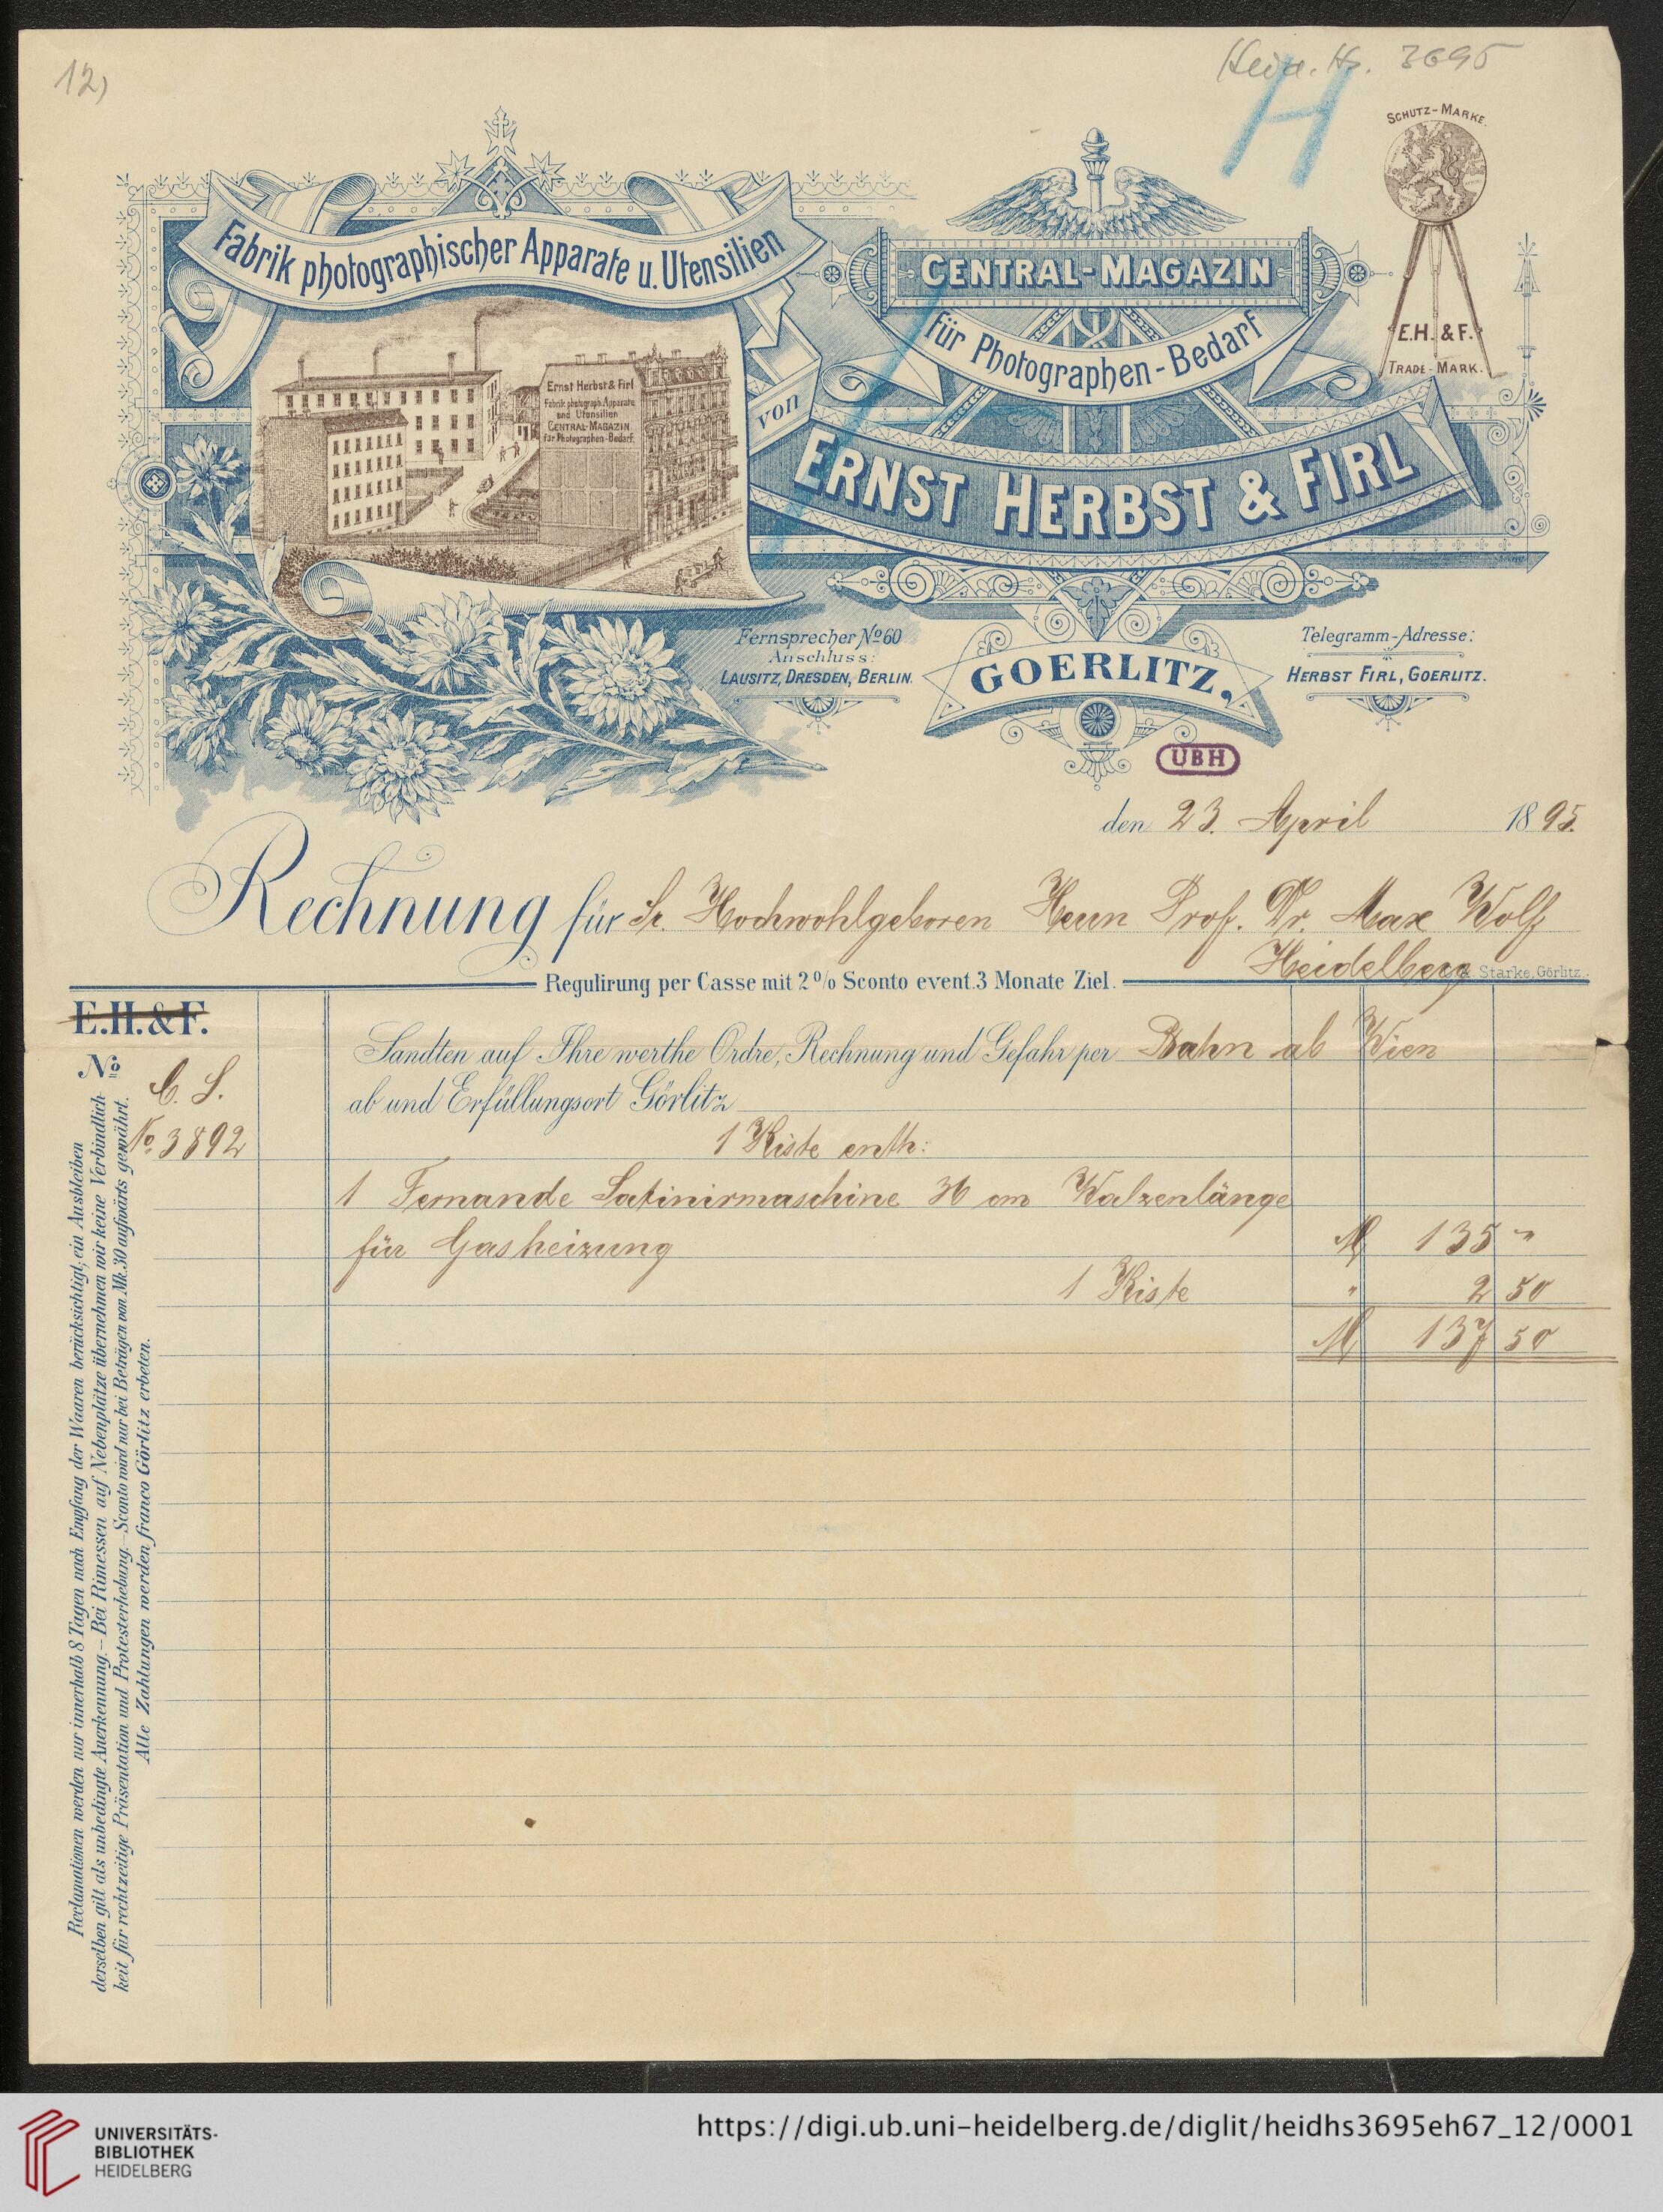 12)
Heid. Hs. 3695
H
SCHUTZ-MARKE.
E.H. & F.
TRADE-MARK.
Fabrik photographischer Apparate u. Utensilien
Ernst Herbst & Firl
Fabrik photograph. Apparate
und Utensilien
CENTRAL-MAGAZIN
für Photographen-Bedarf.
von
CENTRAL-MAGAZIN
für Photographen-Bedarf
ERNST HERBST & FIRL
Fernsprecher No 60
Anschluss:
LAUSITZ, DRESDEN, BERLIN.
GOERLITZ,
Telegramm-Adresse:
HERBST FIRL, GOERLITZ.
UBH
den 23. April 1895.
Rechnung für Sr. Hochwohlgeboren Herrn Prof. Dr. Max Wolf
Heidelberg
Starke, Görlitz.
Regulirung per Casse mit 2% Sconto event. 3 Monate Ziel.
E.H.&F.
No
C. S.
No 3892
Sandten auf Ihre werthe Ordre, Rechnung und Gefahr per Bahn ab Wien
ab und Erfüllungsort Görlitz
1 Kiste enth:
1 Satinirmaschine cm Walzenlänge
für Gasheizung M 135 "
1 Kiste " 2 50
M 137 50
Reclamationen werden nur innerhalb 8 Tagen nach Empfang der Waaren berücksichtigt, ein Ausbleiben
derselben gilt als unbedingte Anerkennung. - Bei Rimessen auf Nebenplätze übernehmen wir keine Verbindlich-
keit für rechtzeitige Präsentation und Protesterhebung. - Sconto wird nur bei Beträgen von Mk. 30 aufwärts gewährt.
Alle Zahlungen werden franco Görlitz erbeten.
UNIVERSITÄTS-
BIBLIOTHEK
HEIDELBERG
https://digi.ub.uni-heidelberg.de/diglit/heidhs3695eh67_12/0001